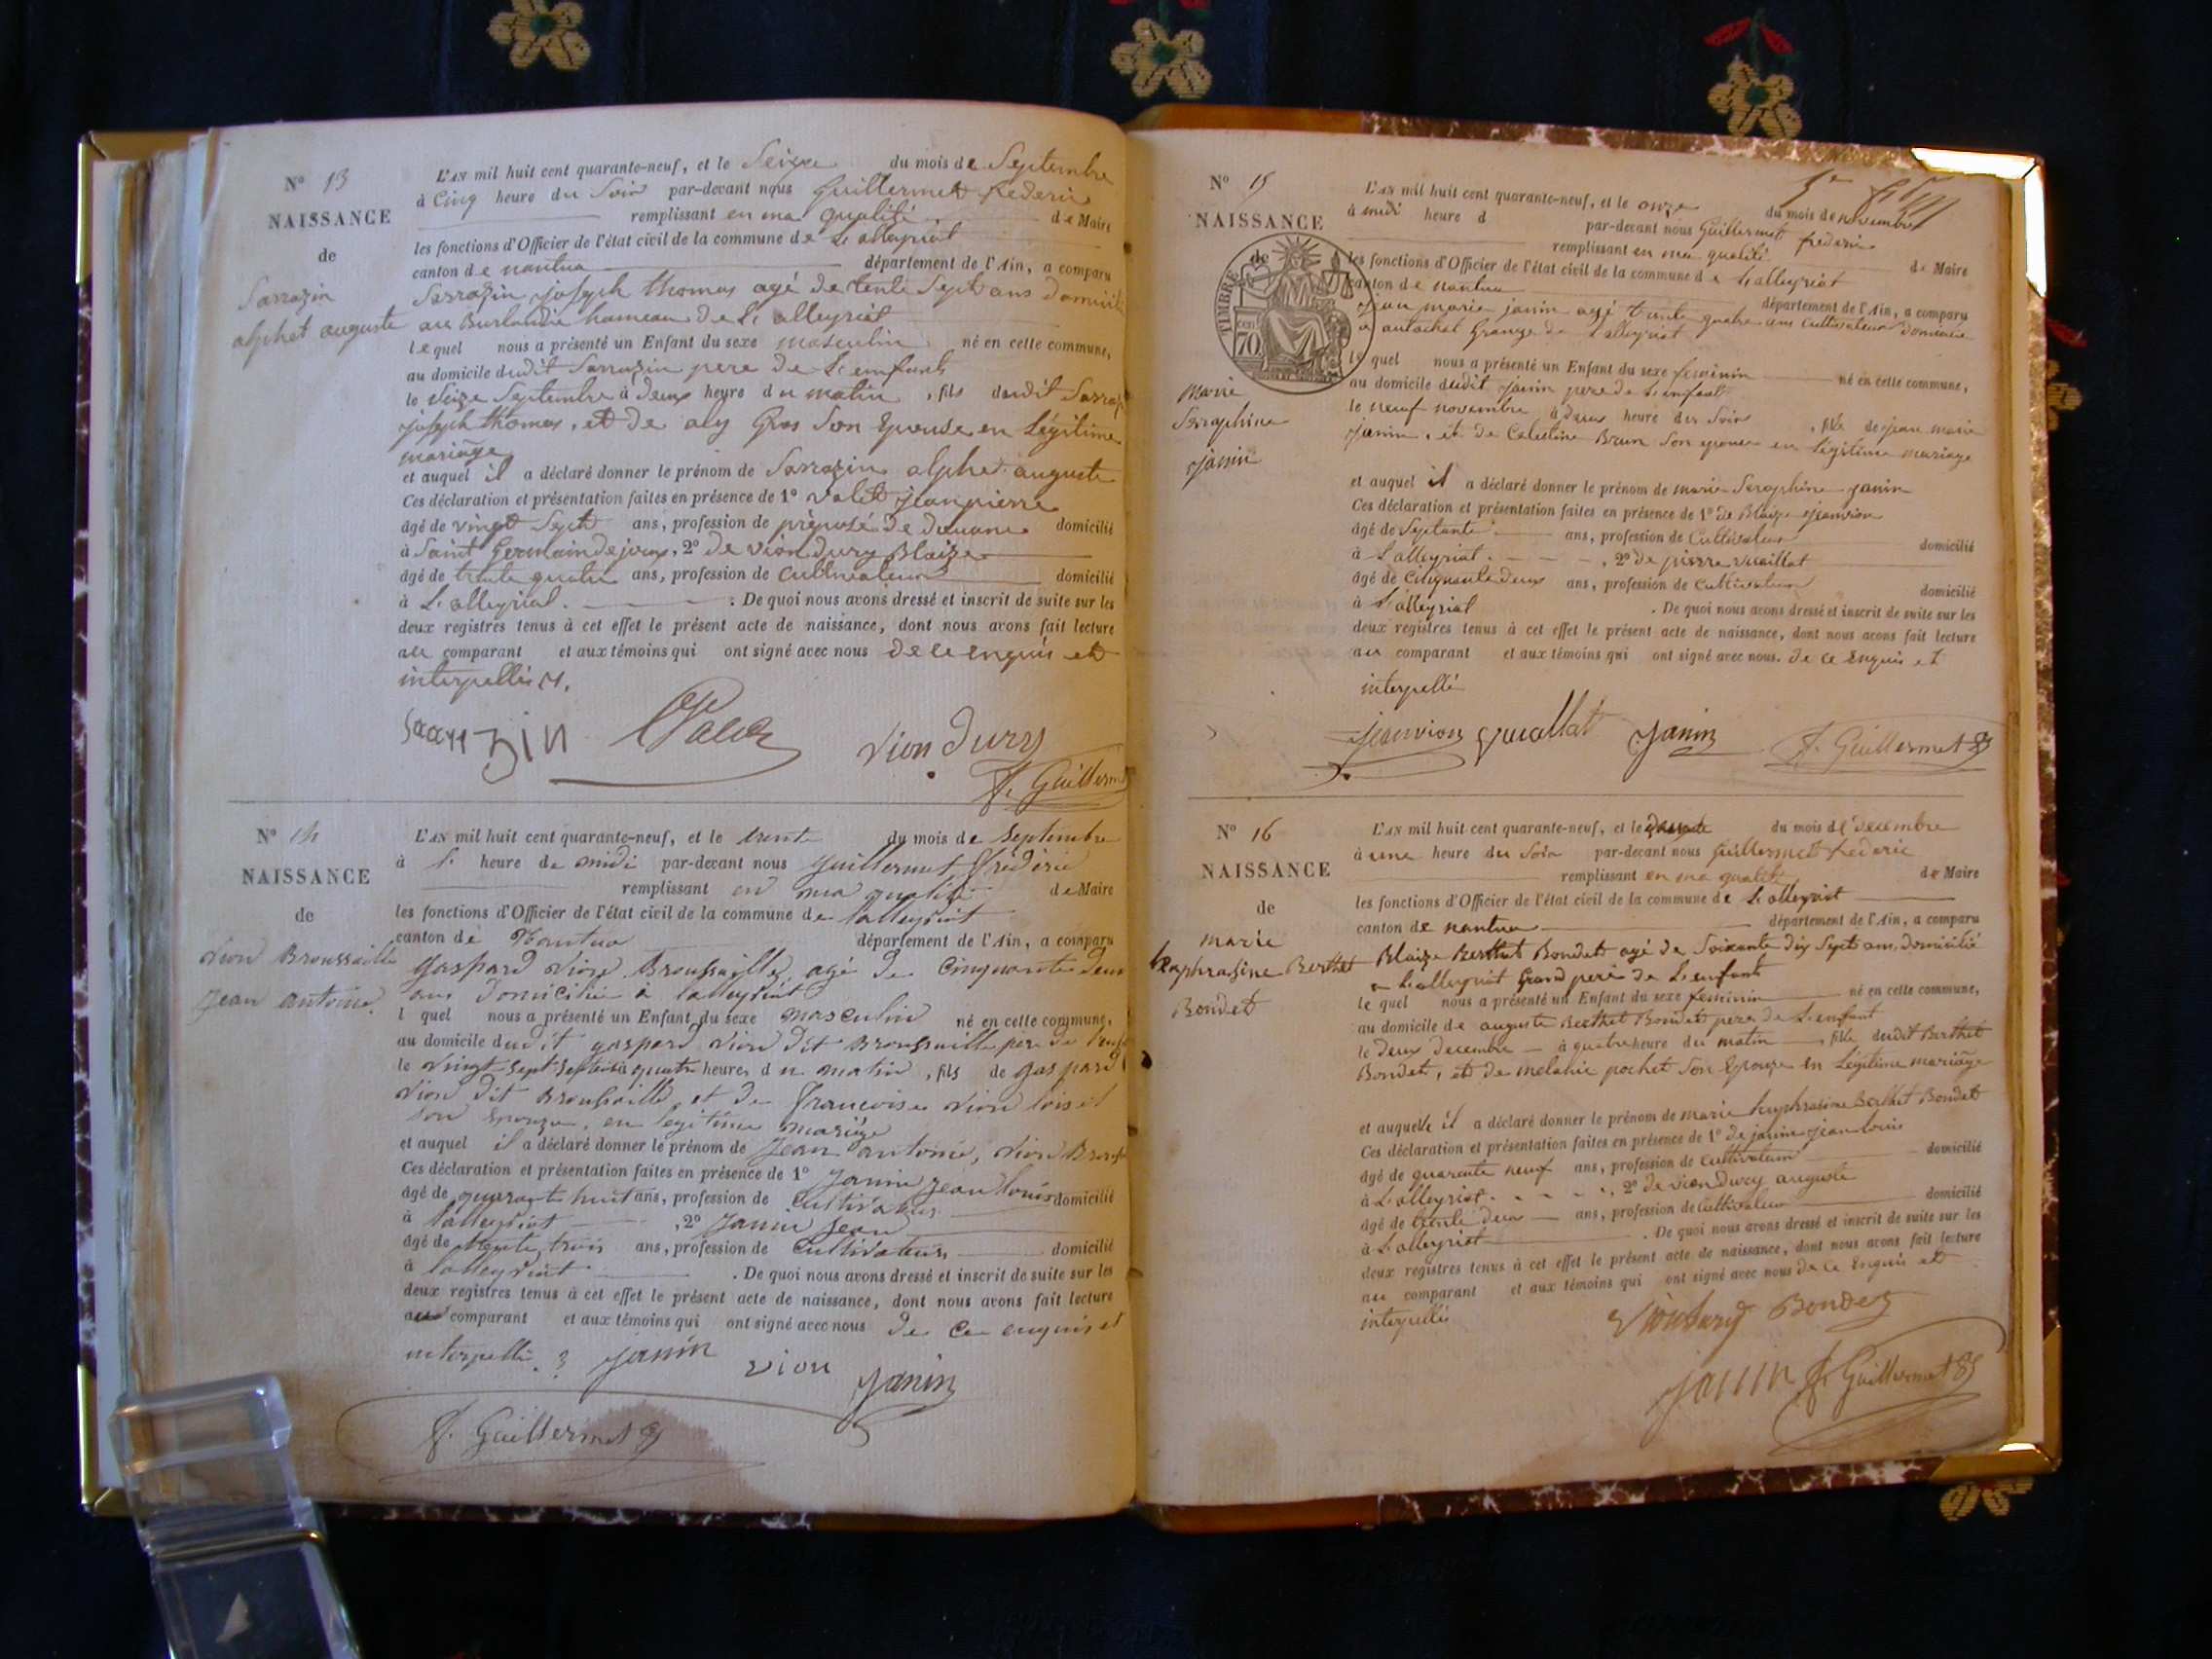 N° 13
NAISSANCE
de
Sarrazin
alphet auguste
L'AN mil huit cent quarante-neuf, et le Seize du mois de Septembre
à Cinq heure du Soir par-devant nous Guillermet frederic
remplissant en ma qualité de Maire
les fonctions d'Officier de l'état civil de la commune de L'alleyriat
canton de nantua département de l'Ain, a comparu
Sarrazin joseph thomas agé de trente Sept ans domicilié
au Burlandier hameau de L'alleyriat
lequel nous a présenté un Enfant du sexe masculin né en cette commune,
au domicile dudit Sarrazin pere de L'enfant
le Seize Septembre à deux heure du matin, fils dudit Sarrazin
joseph thomas, et de aly Gros Son Epouse en Légitime
mariage
et auquel il a déclaré donner le prénom de Sarrazin alphet auguste
Ces déclaration et présentation faites en présence de 1° Valet jean pierre
âgé de vingt Sept ans, profession de préposé de douane domicilié
à Saint Germain de joux, 2° de vion dury Blaize
âgé de trente quatre ans, profession de Cultivateur domicilié
à L'alleyriat. De quoi nous avons dressé et inscrit de suite sur les
deux registres tenus à cet effet le présent acte de naissance, dont nous avons fait lecture
au comparant et aux témoins qui ont signé avec nous de ce enquis et
interpellés
Sarrazin Valet Vion Dury
F. Guillermet
N° 14
NAISSANCE
de
Vion Broussaille
Jean antoine.
L'AN mil huit cent quarante-neuf, et le trente du mois de Septembre
à l' heure de midi par-devant nous Guillermet frédéric
remplissant en ma qualité de Maire
les fonctions d'Officier de l'état civil de la commune de lalleyriat
canton de Nantua département de l'Ain, a comparu
Gaspard Vion Broussailles, agé de Cinquante deux
ans Domicilié à lalleyriat
l quel nous a présenté un Enfant du sexe masculin né en cette commune,
au domicile dudit gaspard Vion Dit Broussaille pere de l'enfant
le Vingt Sept Septembre à quatre heures du matin, fils de gaspard
Vion Dit Broussaille, et de françoise Vion loisel
son Epouse, en légitime mariage
et auquel il a déclaré donner le prénom de Jean antoine, Vion Brouss
Ces déclaration et présentation faites en présence de 1° Janin Jean louis
âgé de quarante huit ans, profession de Cultivateur domicilié
à lalleyriat, 2° Janin Jean
âgé de trente trois ans, profession de Cultivateur domicilié
à lalleyriat. De quoi nous avons dressé et inscrit de suite sur les
deux registres tenus à cet effet le présent acte de naissance, dont nous avons fait lecture
au comparant et aux témoins qui ont signé avec nous de ce enquis et
interpellé. Janin Vion Janin
F. Guillermet
N° 15
NAISSANCE
de
TIMBRE
70
Marie
Seraphine
Janin
L'AN mil huit cent quarante-neuf, et le onze du mois de novembre
à midi heure d par-devant nous Guillermet frederic
remplissant en ma qualité de Maire
les fonctions d'Officier de l'état civil de la commune de L'alleyriat
canton de nantua département de l'Ain, a comparu
jean marie janin agé trente quatre ans Cultivateur domicilié
Grange de L'alleyriat
le quel nous a présenté un Enfant du sexe feminin né en cette commune,
au domicile dudit janin pere de L'enfant
le neuf novembre à deux heure du Soir, fille de jean marie
janin, et de Celestine Brun Son epouse en Légitime mariage
et auquel il a déclaré donner le prénom de marie Seraphine janin
Ces déclaration et présentation faites en présence de 1° de Blaize jeanvion
âgé de Septante ans, profession de Cultivateur domicilié
à L'alleyriat, 2° de pierre vuaillat
âgé de Cinquante deux ans, profession de Cultivateur domicilié
à L'alleyriat. De quoi nous avons dressé et inscrit de suite sur les
deux registres tenus à cet effet le présent acte de naissance, dont nous avons fait lecture
au comparant et aux témoins qui ont signé avec nous. de ce Enquis et
interpellé
jeanvion vuaillat Janin F. Guillermet
N° 16
NAISSANCE
de
marie
Euphrasine Berthet
Bondet
L'AN mil huit cent quarante-neuf, et le du mois de decembre
à une heure du Soir par-devant nous Guillermet frederic
remplissant en ma qualité de Maire
les fonctions d'Officier de l'état civil de la commune de L'alleyriat
canton de nantua département de l'Ain, a comparu
Blaize Berthet Bondet agé de Soixante dix Sept ans, domicilié
a L'alleyriat Grand pere de L'enfant
le quel nous a présenté un Enfant du sexe feminin né en cette commune,
au domicile de auguste Berthet Bondet pere de L'enfant
le deux decembre à quatre heure du matin, fille dudit Berthet
Bondet, et de melanie pochet Son Epouse en Légitime mariage
et auquelle il a déclaré donner le prénom de marie Euphrasine Berthet Bondet
Ces déclaration et présentation faites en présence de 1° de janin jean louis
âgé de quarante neuf ans, profession de Cultivateur domicilié
à L'alleyriat, 2° de vion Dury auguste
âgé de trente deux ans, profession de Cultivateur domicilié
à L'alleyriat. De quoi nous avons dressé et inscrit de suite sur les
deux registres tenus à cet effet le présent acte de naissance, dont nous avons fait lecture
au comparant et aux témoins qui ont signé avec nous de ce Enquis et
interpellés
Viondury Bondet
Janin F. Guillermet